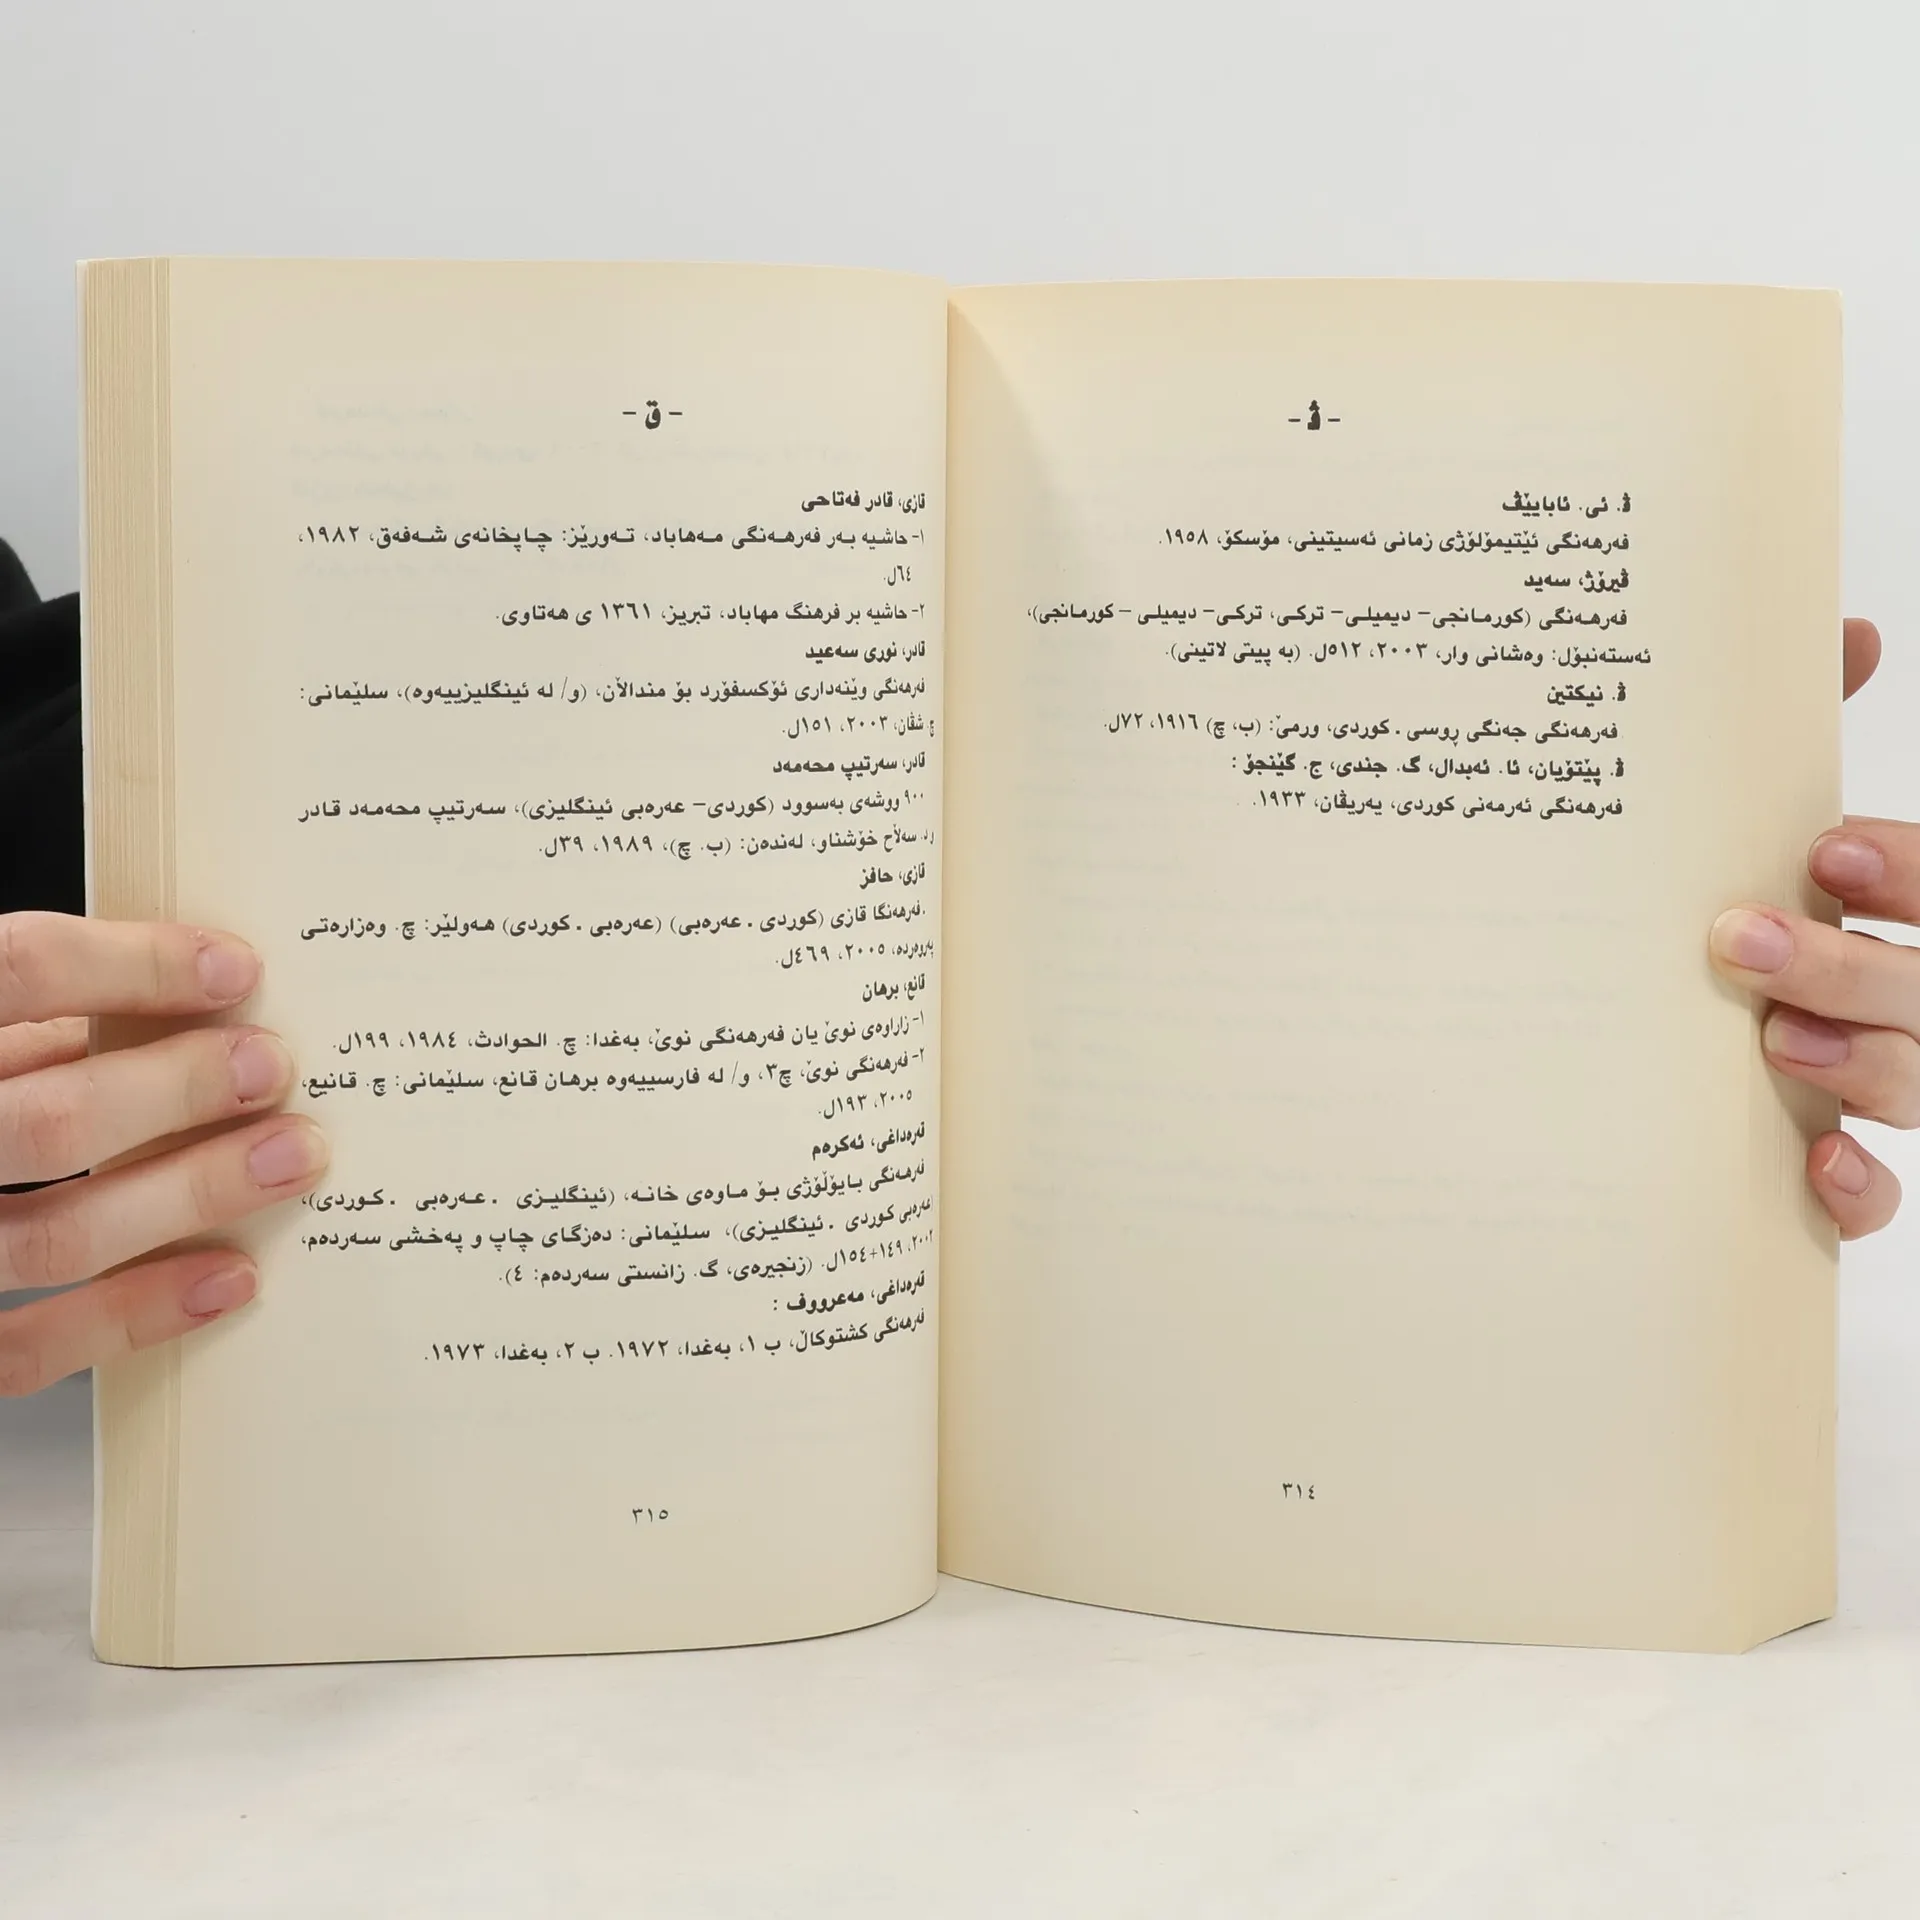 - ڤ -
ڤ. ئی. ئابایێڤ
فەرهەنگی ئێتیمۆلۆژی زمانی ئەسیتینی، مۆسکۆ، ١٩٥٨.
ڤیرۆژ، سەید
فەرهەنگی (کورمانجی- دیمیلی- ترکی، ترکی- دیمیلی - کورمانجی)،
ئەستەنبۆل: وەشانی وار، ٢٠٠٣، ٥١٢ل. (بە پیتی لاتینی).
ڤ. نیکتین
فەرهەنگی جەنگی ڕوسی . کوردی، ورمێ: (ب، چ) ١٩١٦، ٧٢ل.
ڤ. پێتۆیان، ئا. ئەبدال، گ. جندی، ج. گێنجۆ :
فەرهەنگی ئەرمەنی کوردی، یەریڤان، ١٩٣٣.
٣١٤
- ق -
قازی، قادر فەتاحی
١- حاشیە بەر فەرهەنگی مەهاباد، تەورێز: چاپخانەی شەفەق، ١٩٨٢،
٦٤ل.
٢- حاشیە بر فرهنگ مهاباد، تبریز، ١٣٦١ ی هەتاوی.
قادر، نوری سەعید
فەرهەنگی وێنەداری ئۆکسفۆرد بۆ منداڵان، (و/ لە ئینگلیزییەوە)، سلێمانی:
چ. شڤان، ٢٠٠٣، ١٥١ل.
قادر، سەرتیپ محەمەد
٩٠٠ ووشەی بەسوود (کوردی- عەرەبی ئینگلیزی)، سەرتیپ محەمەد قادر
و د. سەلاح خۆشناو، لەندەن: (ب. چ)، ١٩٨٩، ٣٩ل.
قازی، حافز
.فەرهەنگا قازی (کوردی . عەرەبی) (عەرەبی . کوردی) هەولێر: چ. وەزارەتی
پەروەردە، ٢٠٠٥، ٤٦٩ل.
قانع، برهان
١- زاراوەی نوێ یان فەرهەنگی نوێ، بەغدا: چ. الحوادث، ١٩٨٤، ١٩٩ل.
٢- فەرهەنگی نوێ، چ٣، و/ لە فارسییەوە برهان قانع، سلێمانی: چ. قانیع،
٢٠٠٥، ١٩٣ل.
قەرەداغی، ئەکرەم
فەرهەنگی بایۆلۆژی بۆ ماوەی خانە، (ئینگلیزی . عەرەبی . کوردی)،
(عەرەبی کوردی . ئینگلیزی)، سلێمانی: دەزگای چاپ و پەخشی سەردەم،
٢٠٠٢، ١٤٩+١٥٤ل. (زنجیرەی، گ. زانستی سەردەم: ٤).
قەرەداغی، مەعرووف :
فەرهەنگی کشتوکاڵ، ب ١، بەغدا، ١٩٧٢. ب ٢، بەغدا، ١٩٧٣.
٣١٥